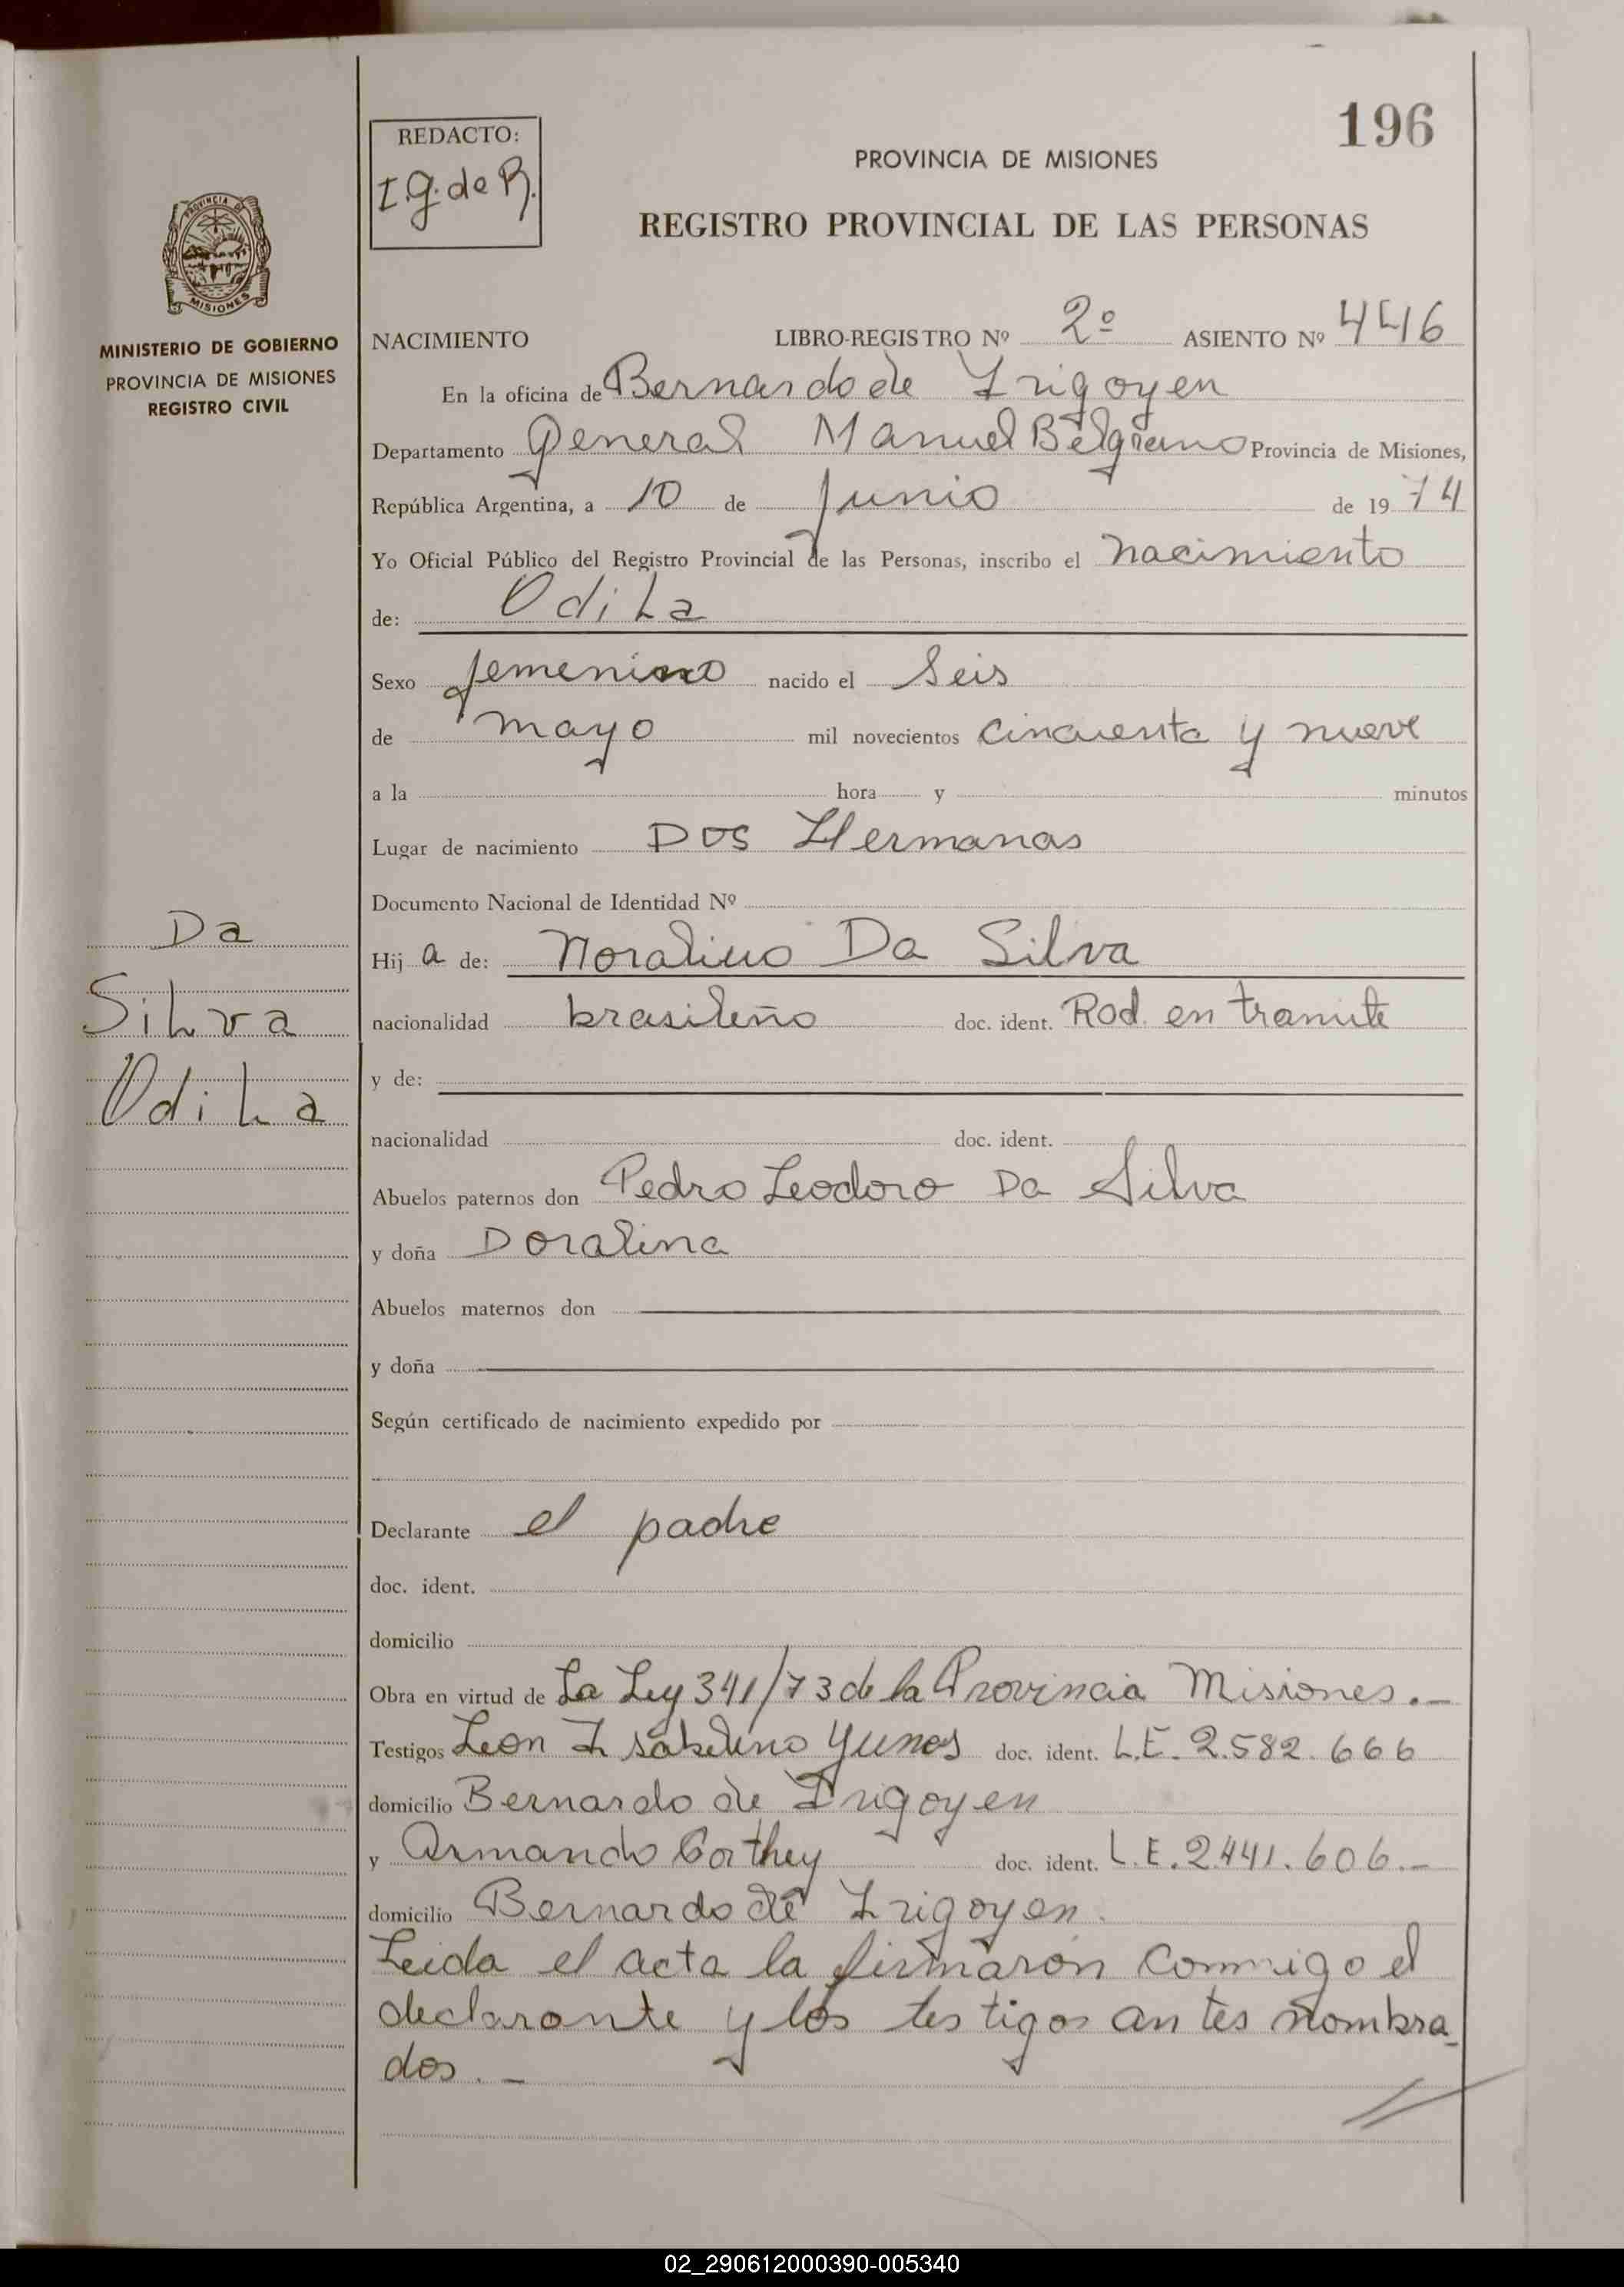 196
REDACTO:
I.G. de R.
PROVINCIA DE MISIONES
REGISTRO PROVINCIAL DE LAS PERSONAS
PROVINCIA DE
MISIONES
MINISTERIO DE GOBIERNO
PROVINCIA DE MISIONES
REGISTRO CIVIL
NACIMIENTO LIBRO-REGISTRO Nº 2º ASIENTO Nº 446
En la oficina de Bernardo de Irigoyen
Departamento General Manuel Belgrano Provincia de Misiones,
República Argentina, a 10 de Junio de 1974
Yo Oficial Público del Registro Provincial de las Personas, inscribo el nacimiento
de: Odila
Sexo femenino nacido el Seis
de mayo mil novecientos cincuenta y nueve
a la hora y minutos
Lugar de nacimiento Dos Hermanas
Documento Nacional de Identidad Nº
Da
Silva
Odila
Hij a de: Noralino Da Silva
nacionalidad brasileño doc. ident. Rod. en tramite
y de:
nacionalidad doc. ident.
Abuelos paternos don Pedro Leodoro Da Silva
y doña Doralina
Abuelos maternos don
y doña
Según certificado de nacimiento expedido por
Declarante el padre
doc. ident.
domicilio
Obra en virtud de La Ley 341/73 de la Provincia Misiones.-
Testigos Leon Isabelino Yunes doc. ident. L.E. 2.582.666
domicilio Bernardo de Irigoyen
y Armando doc. ident. L.E. 2.441.606.-
domicilio Bernardo de Irigoyen.
Leida el acta la firmaron conmigo el
declarante y los testigos antes nombra-
dos.-
02_290612000390-005340